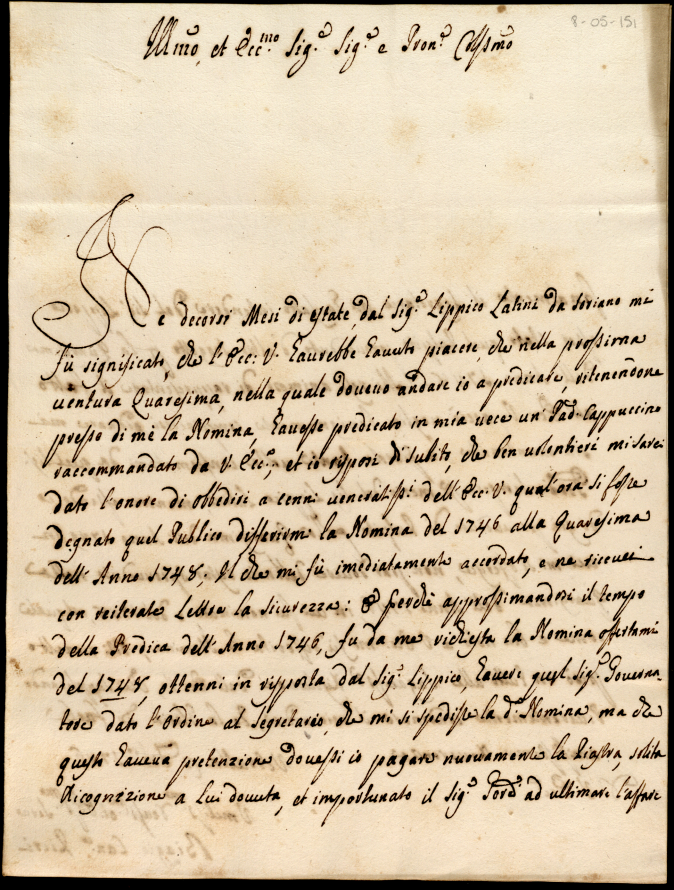 8-05-151
Illmo, et Ecc.mo Sig.e Sig.e e Pron.e Colssmo
Ne decorsi Mesi di estate, dal Sig.e Lippico Latini da Soriano mi
fù significato, che l'Ecc: V. haurebbe hauuto piacere, che nella prossima
uentura Quaresima, nella quale doueuo andare io a predicare, ritenendone
presso di mè la Nomina, hauesse predicato in mia uece un' Pad. Cappuccino
raccommandato da V. Ecc.a, et io risposi di subito, che ben uolentieri mi sarei
dato l'onore di obbedire a cenni ueneratiss.i dell' Ecc: V. qual'ora si fosse
degnato quel Publico differirmi la Nomina del 1746 alla Quaresima
dell' Anno 1748; Il che mi fù imediatamente accordato, e ne riceuei
con reiterate Lettere la Sicurezza: E perchè approssimandosi il tempo
della Predica dell' Anno 1746, fu da me richiesta la Nomina offertami
del 1748, ottenni in risposta dal Sig.e Lippico, hauere quel Sig.e Gouerna-
tore dato l'Ordine al Segretario, che mi si spedisse la d.a Nomina, ma che
questo haueua pretenzione douessi io pagare nuouamente la Piastra, solita
Ricognizione a Lui douuta, et importunato il Sig.e ad ultimare l'affare